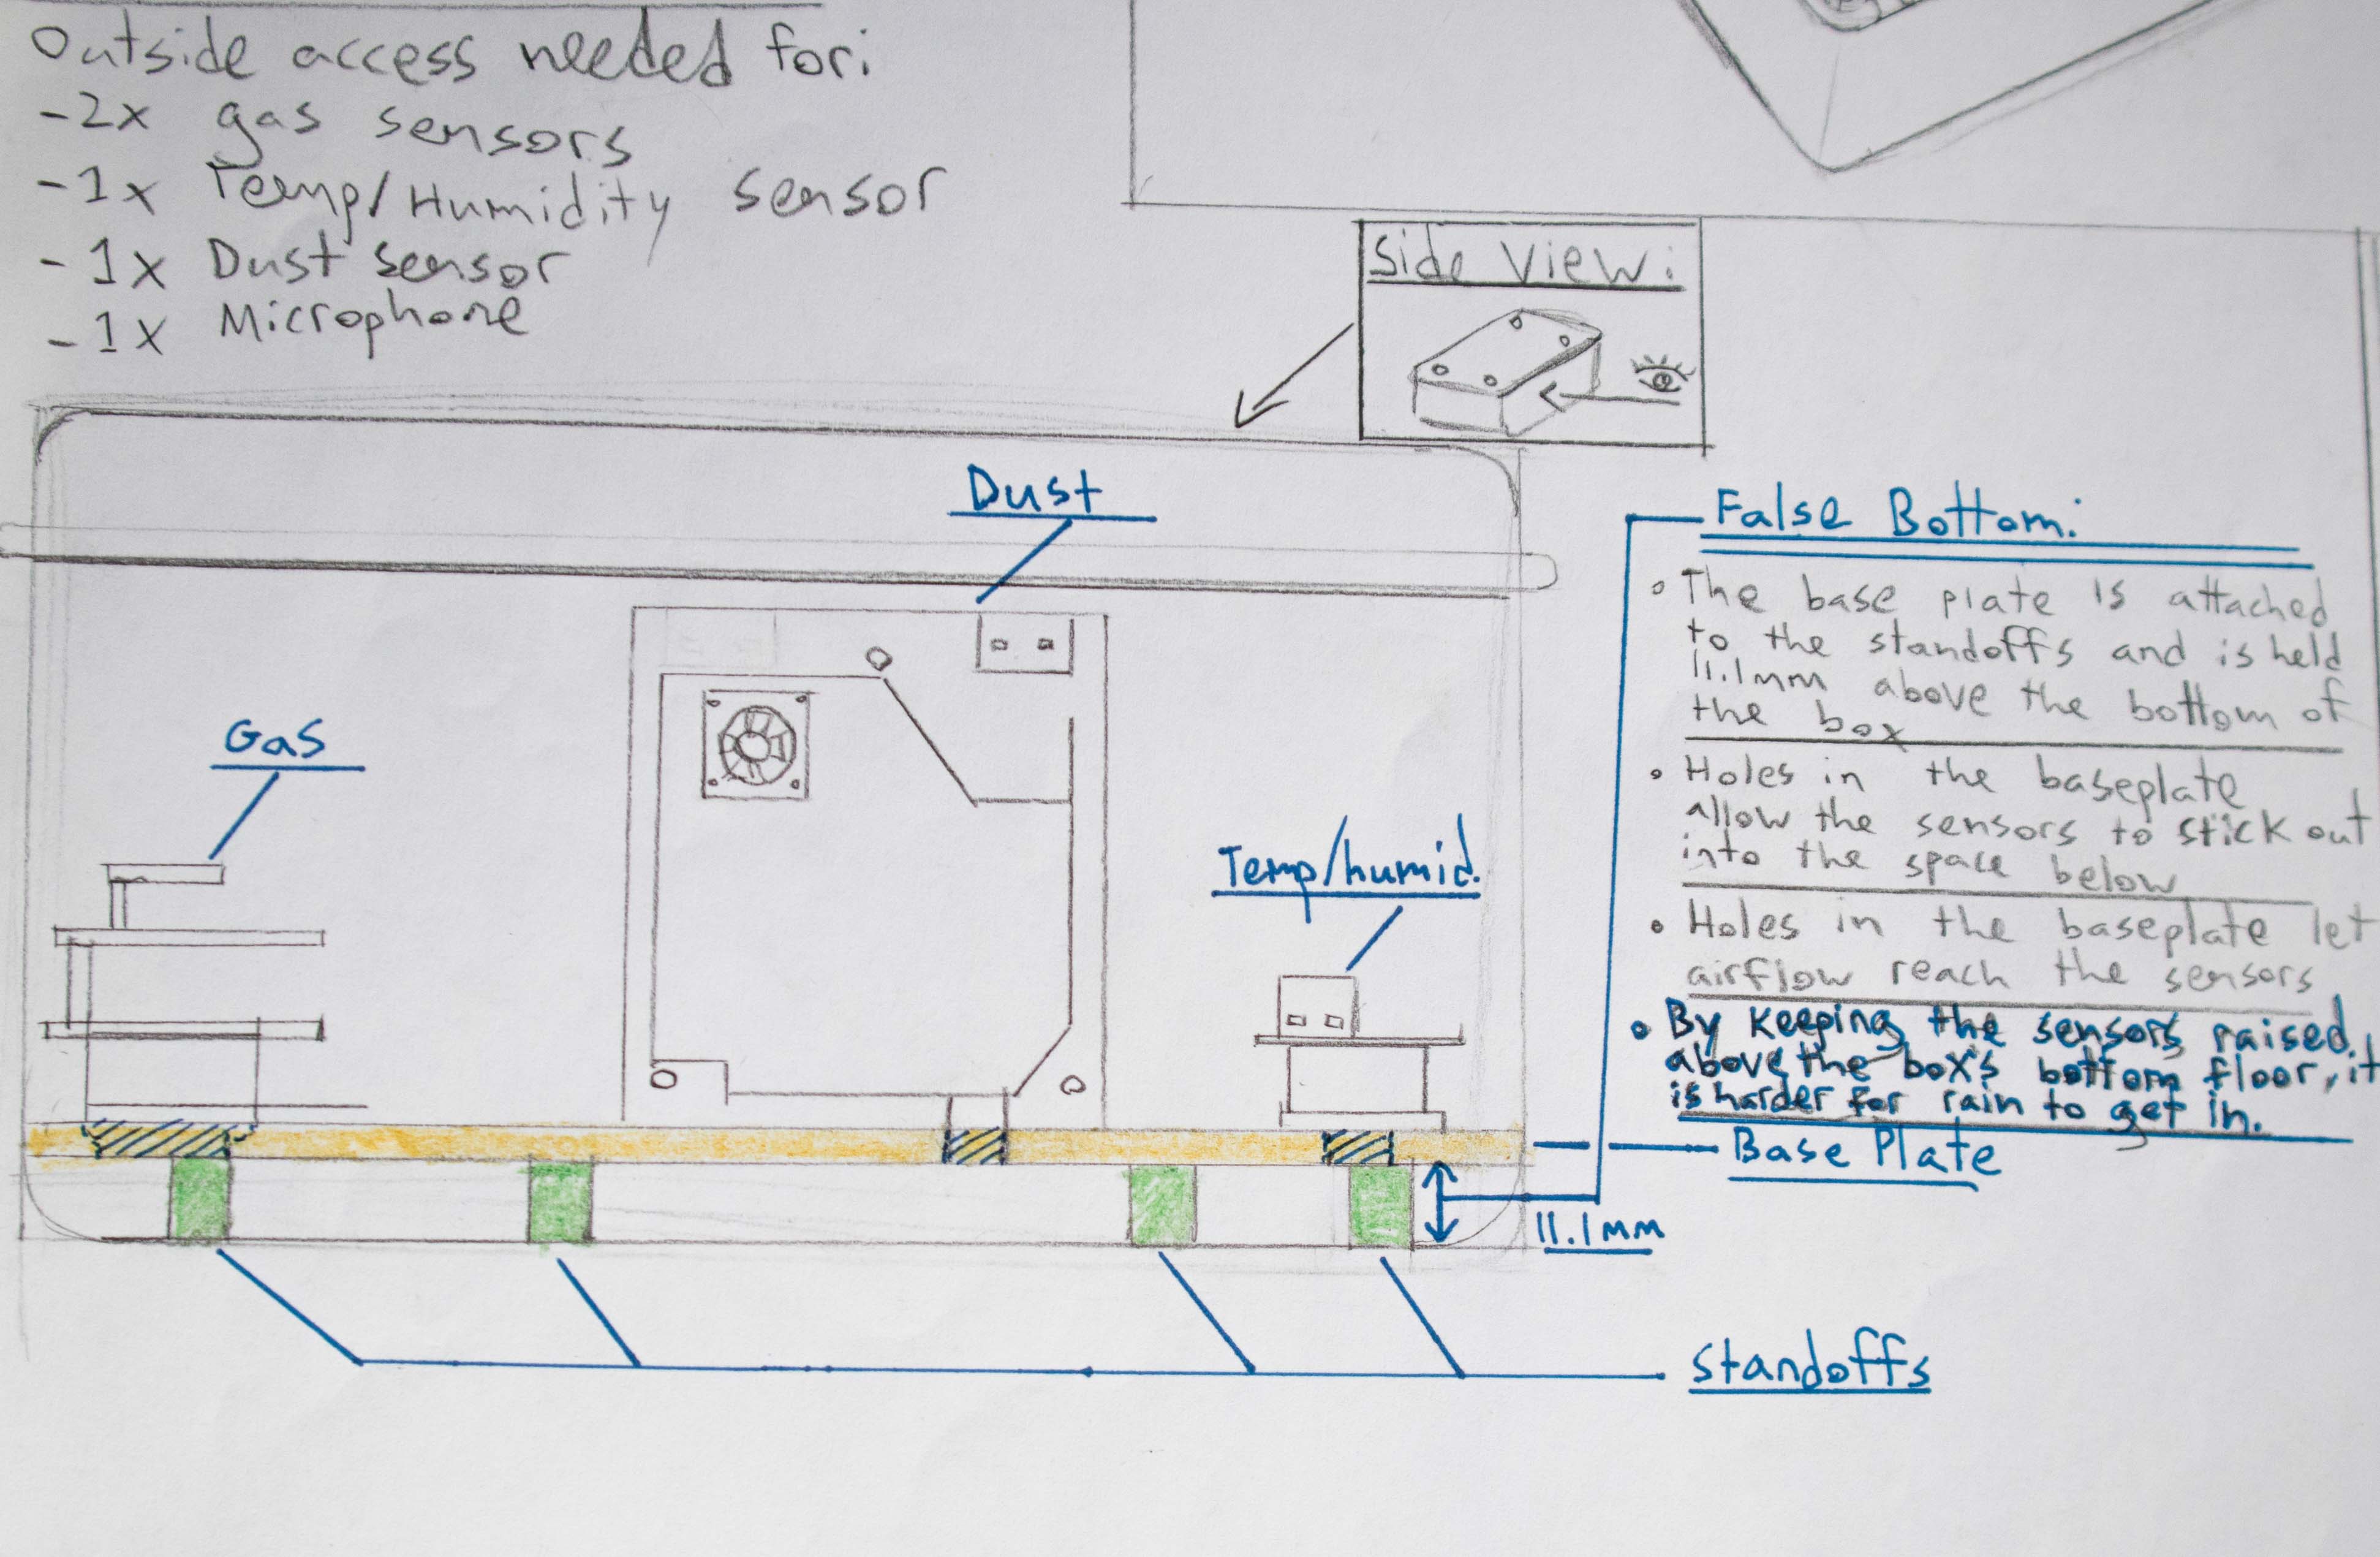 Outside access needed for:
-2x gas sensors
-1x Temp/Humidity sensor
-1x Dust sensor
-1x Microphone
Side View:
Dust
Gas
Temp/humid.
False Bottom:
• The base plate is attached
to the standoffs and is held
11.1mm above the bottom of
the box
• Holes in the baseplate
allow the sensors to stick out
into the space below
• Holes in the baseplate let
airflow reach the sensors
• By keeping the sensors raised
above the box's bottom floor, it
is harder for rain to get in.
Base Plate
11.1mm
Standoffs